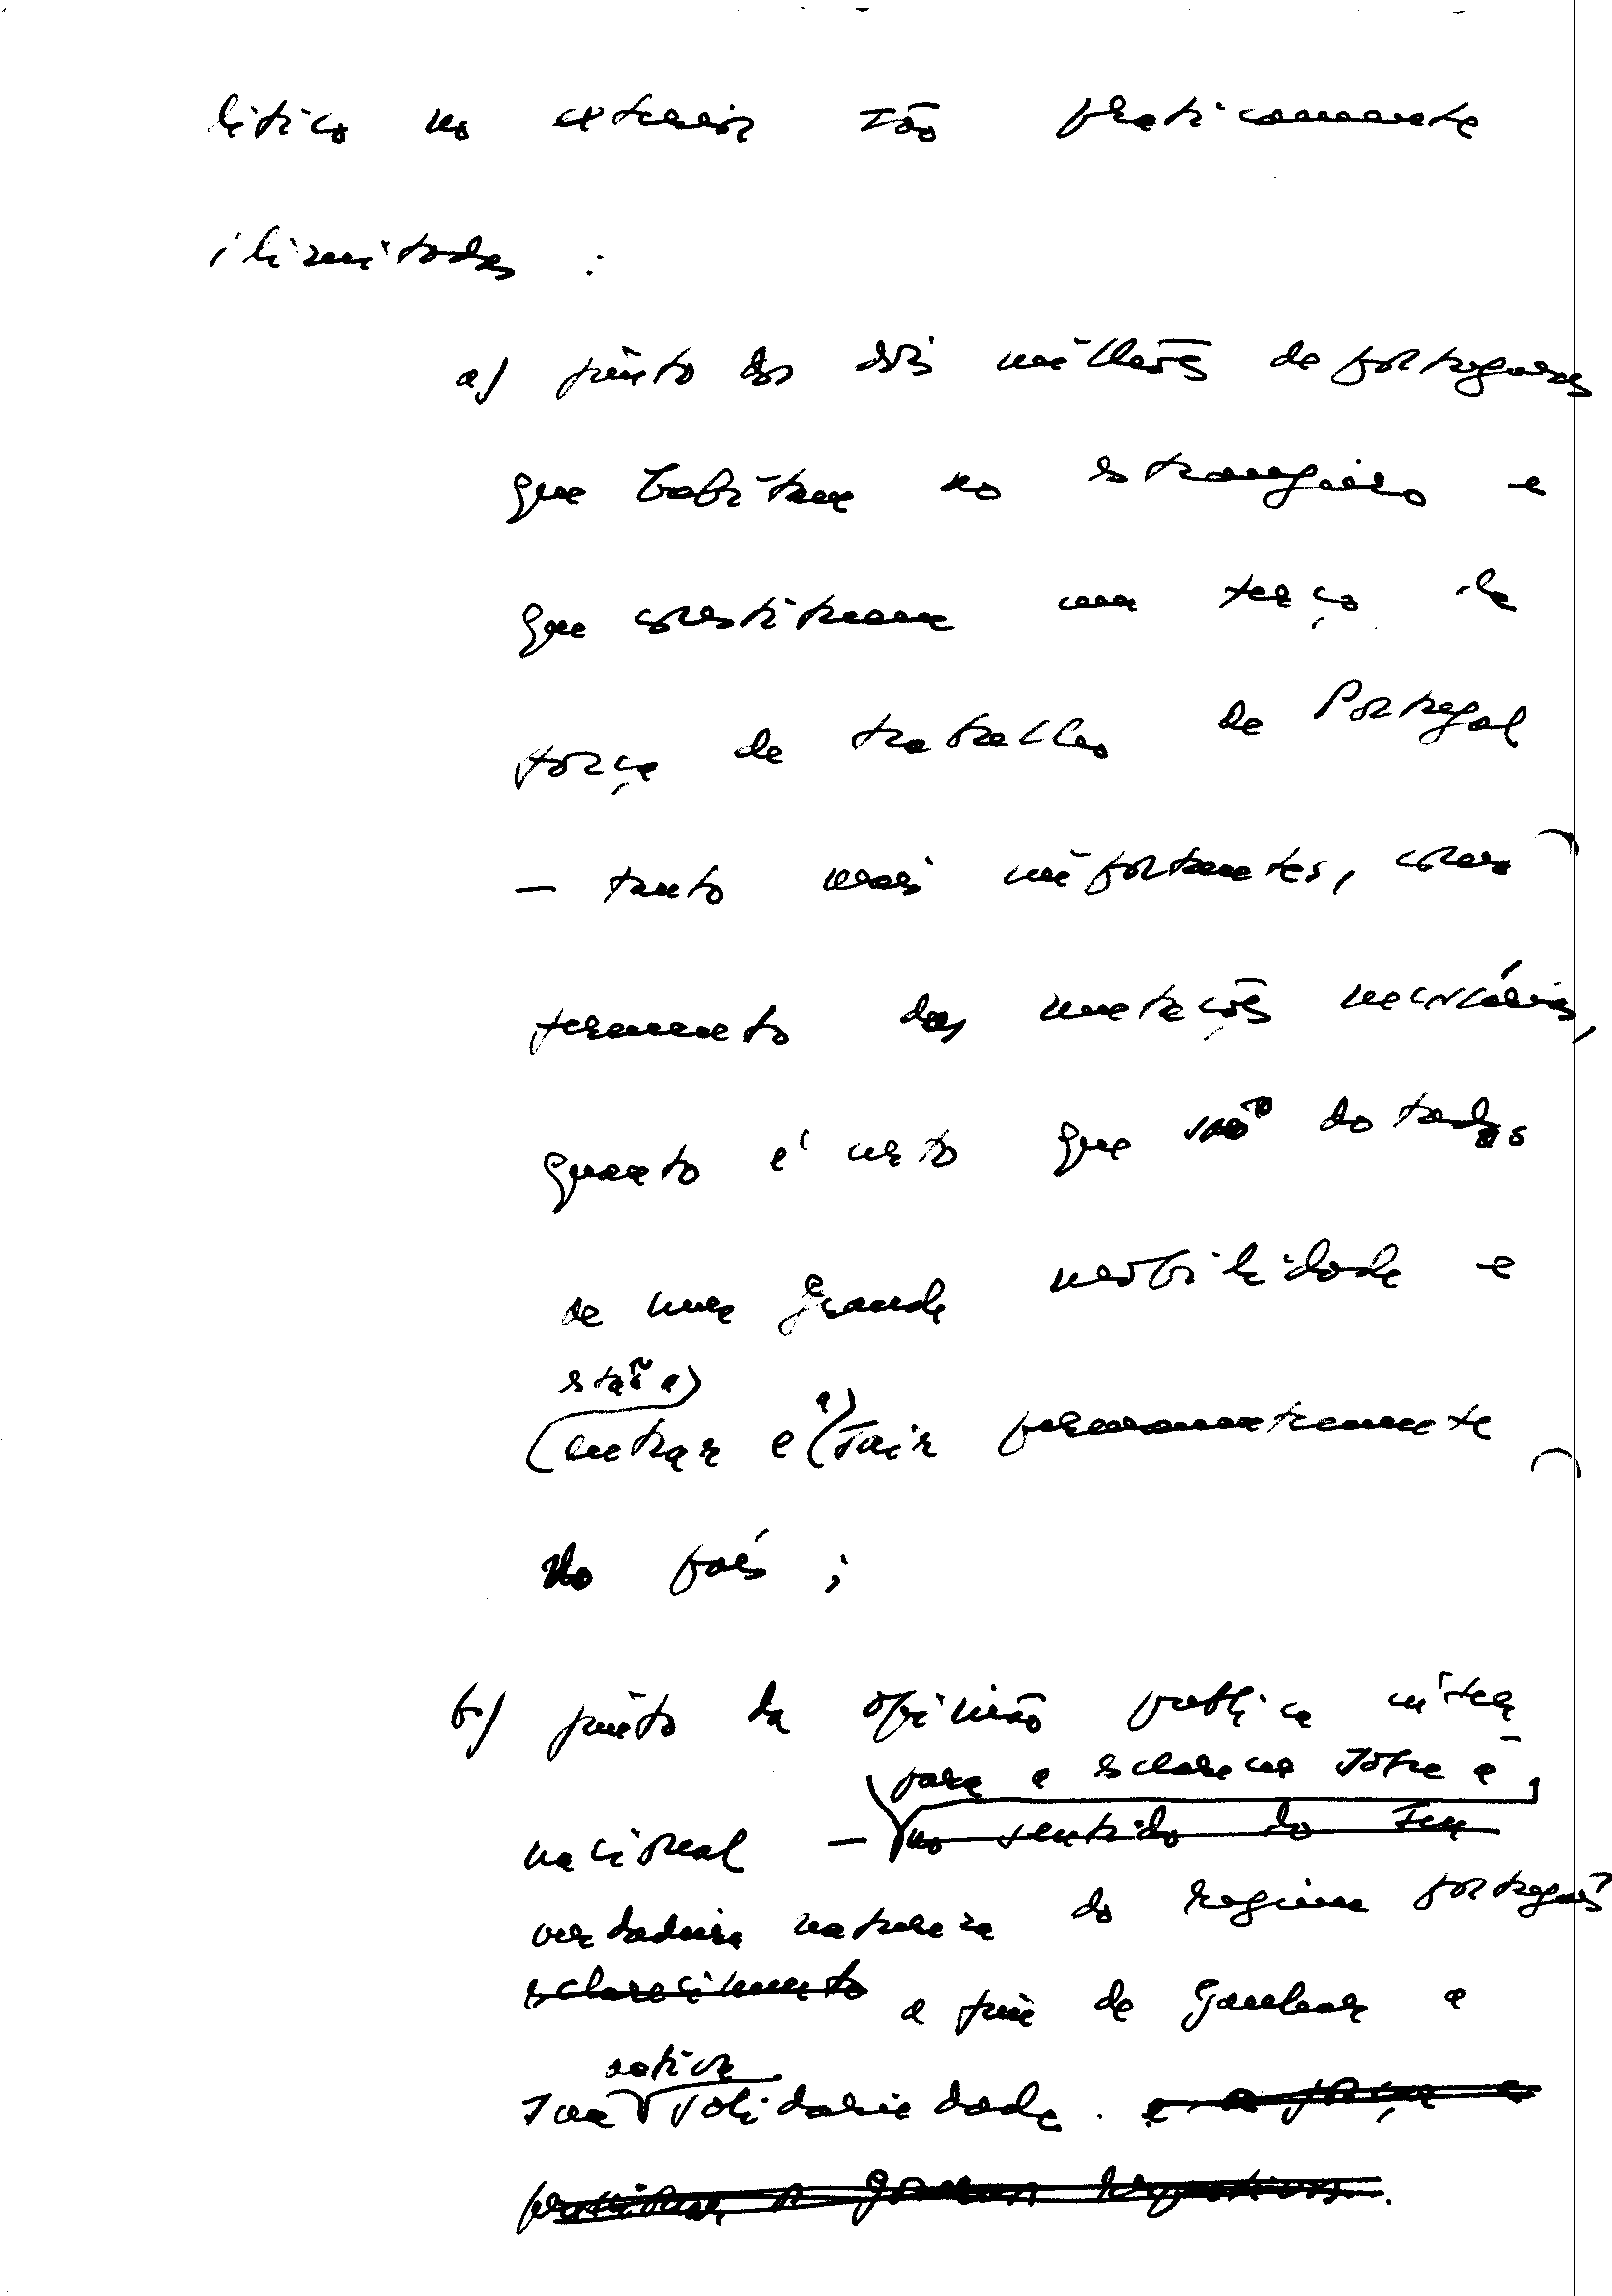 lítico no exterior são praticamente
ilimitadas :
a) junto dos dois milhões de portugueses
que habitam no estrangeiro e
que constituem um terço da
força de trabalho de Portugal
— tanto mais importantes, como
fermento das mutações necessárias,
quanto é certo que são dotados
de uma grande mobilidade e
estão a)
(entrar e (a) sair permanentemente
do país ;
b) junto da opinião pública inter-
para a esclarecer sobre a
nacional — no sentido do seu
verdadeira natureza do regime português
esclarecimento a fim de ganhar a
activa
sua solidariedade. e a força a